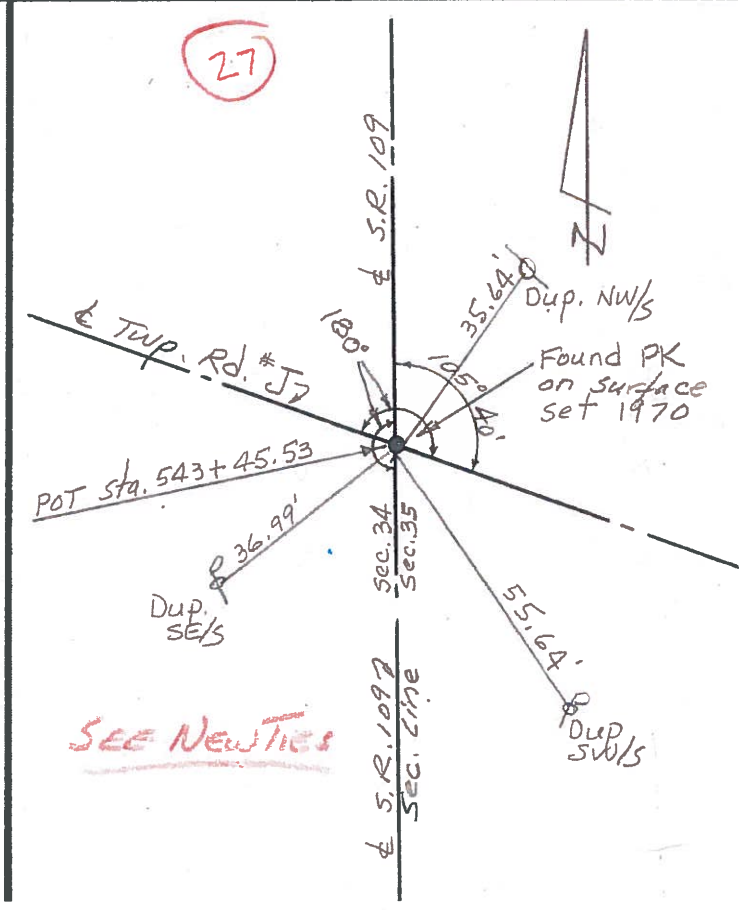 27
℄ S.R. 109
N
35.64'
Dup. NW/S
℄ Twp. Rd. #J
180°
105° 40'
Found PK
on surface
set 1970
POT Sta. 543+45.53
36.99'
Sec. 34
Sec. 35
Dup.
SE/S
55.64'
Dup
SW/S
SEE NEW TIES
℄ S.R. 109
Sec. Line